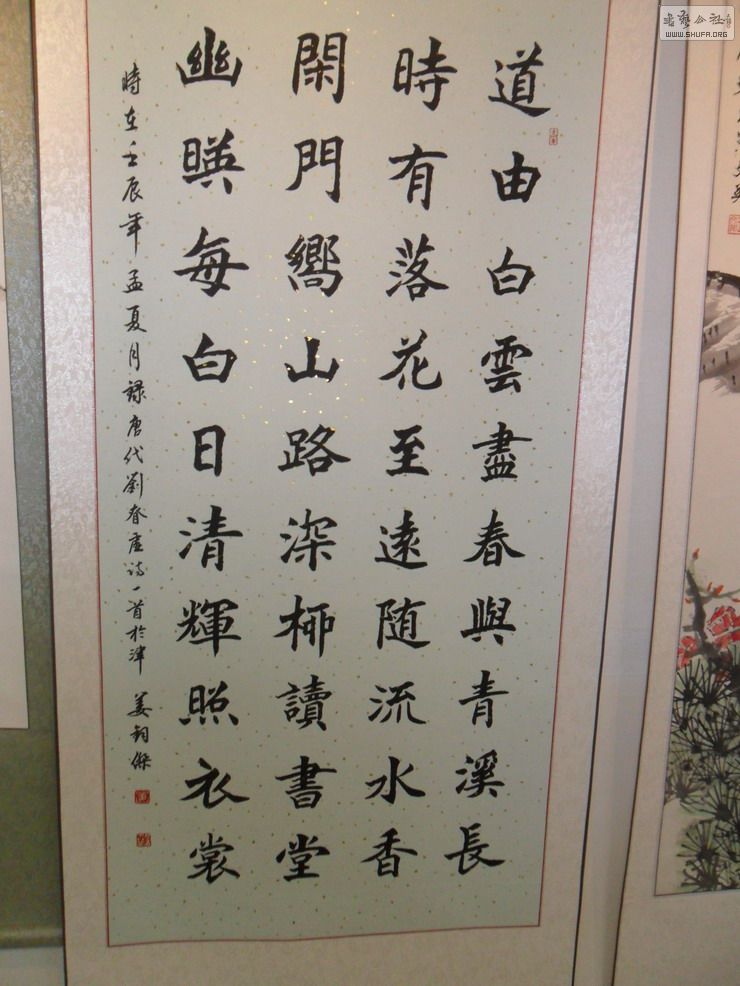 道由白雲盡春與青溪長
時有落花至遠随流水香
閑門嚮山路深柳讀書堂
幽暎每白日清輝照衣裳
時在壬辰年孟夏月录唐代劉眘虛诗一首於津 姜钧傑
書藝公社
WWW.SHUFA.ORG